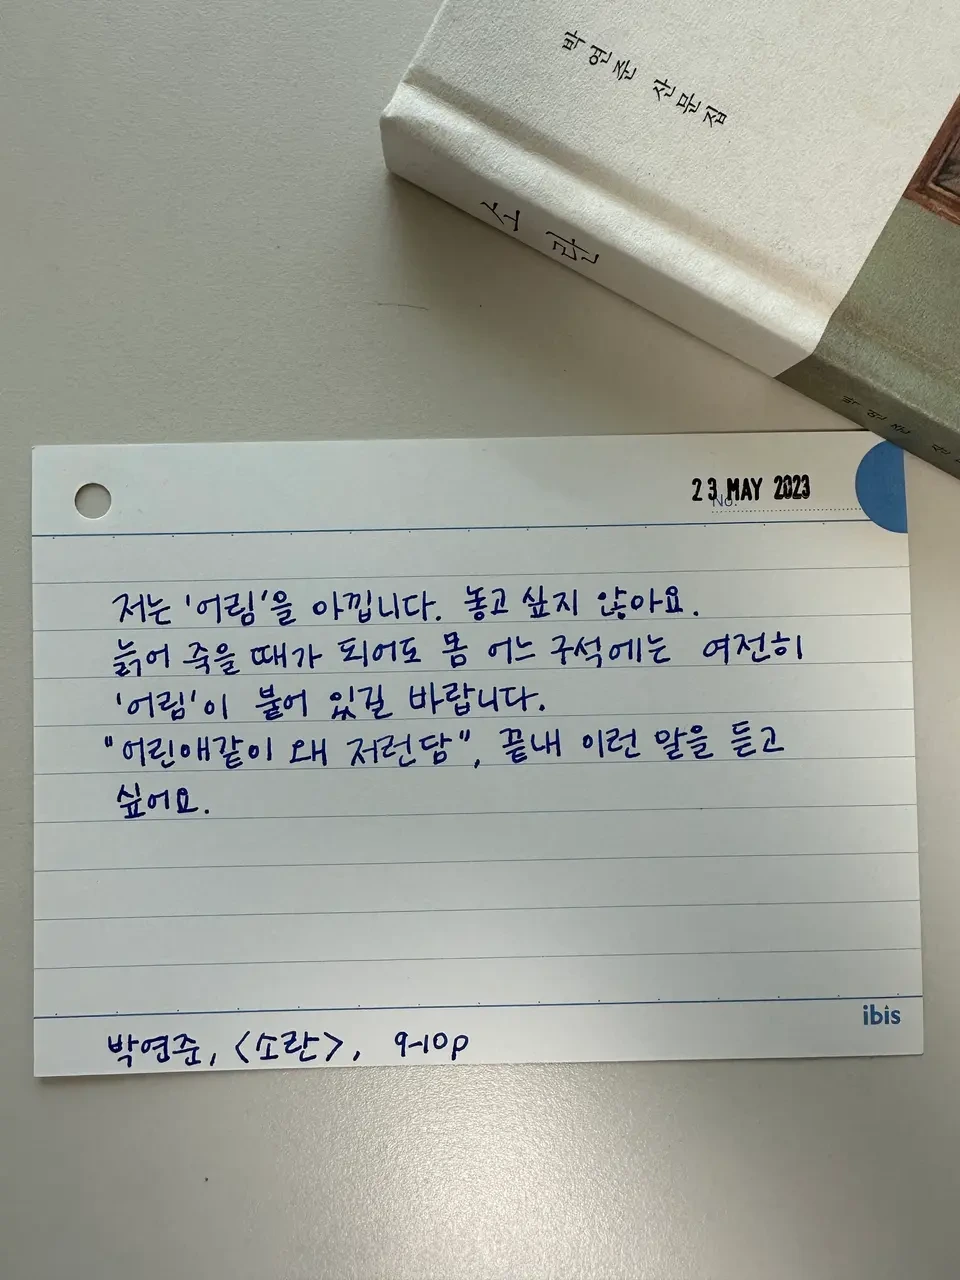 박연준 산문집
소란
박연준 산
23 MAY 2023
No.
저는 '어림'을 아낍니다. 놓고 싶지 않아요.
늙어 죽을 때가 되어도 몸 어느 구석에는 여전히
'어림'이 붙어 있길 바랍니다.
"어린애같이 왜 저런담", 끝내 이런 말을 듣고
싶어요.
ibis
박연준, <소란>, 9-10p